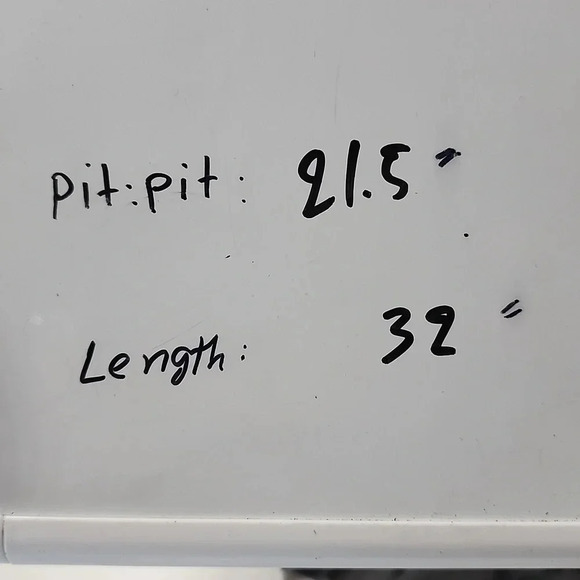 pit:pit: 21.5"
Length: 32"